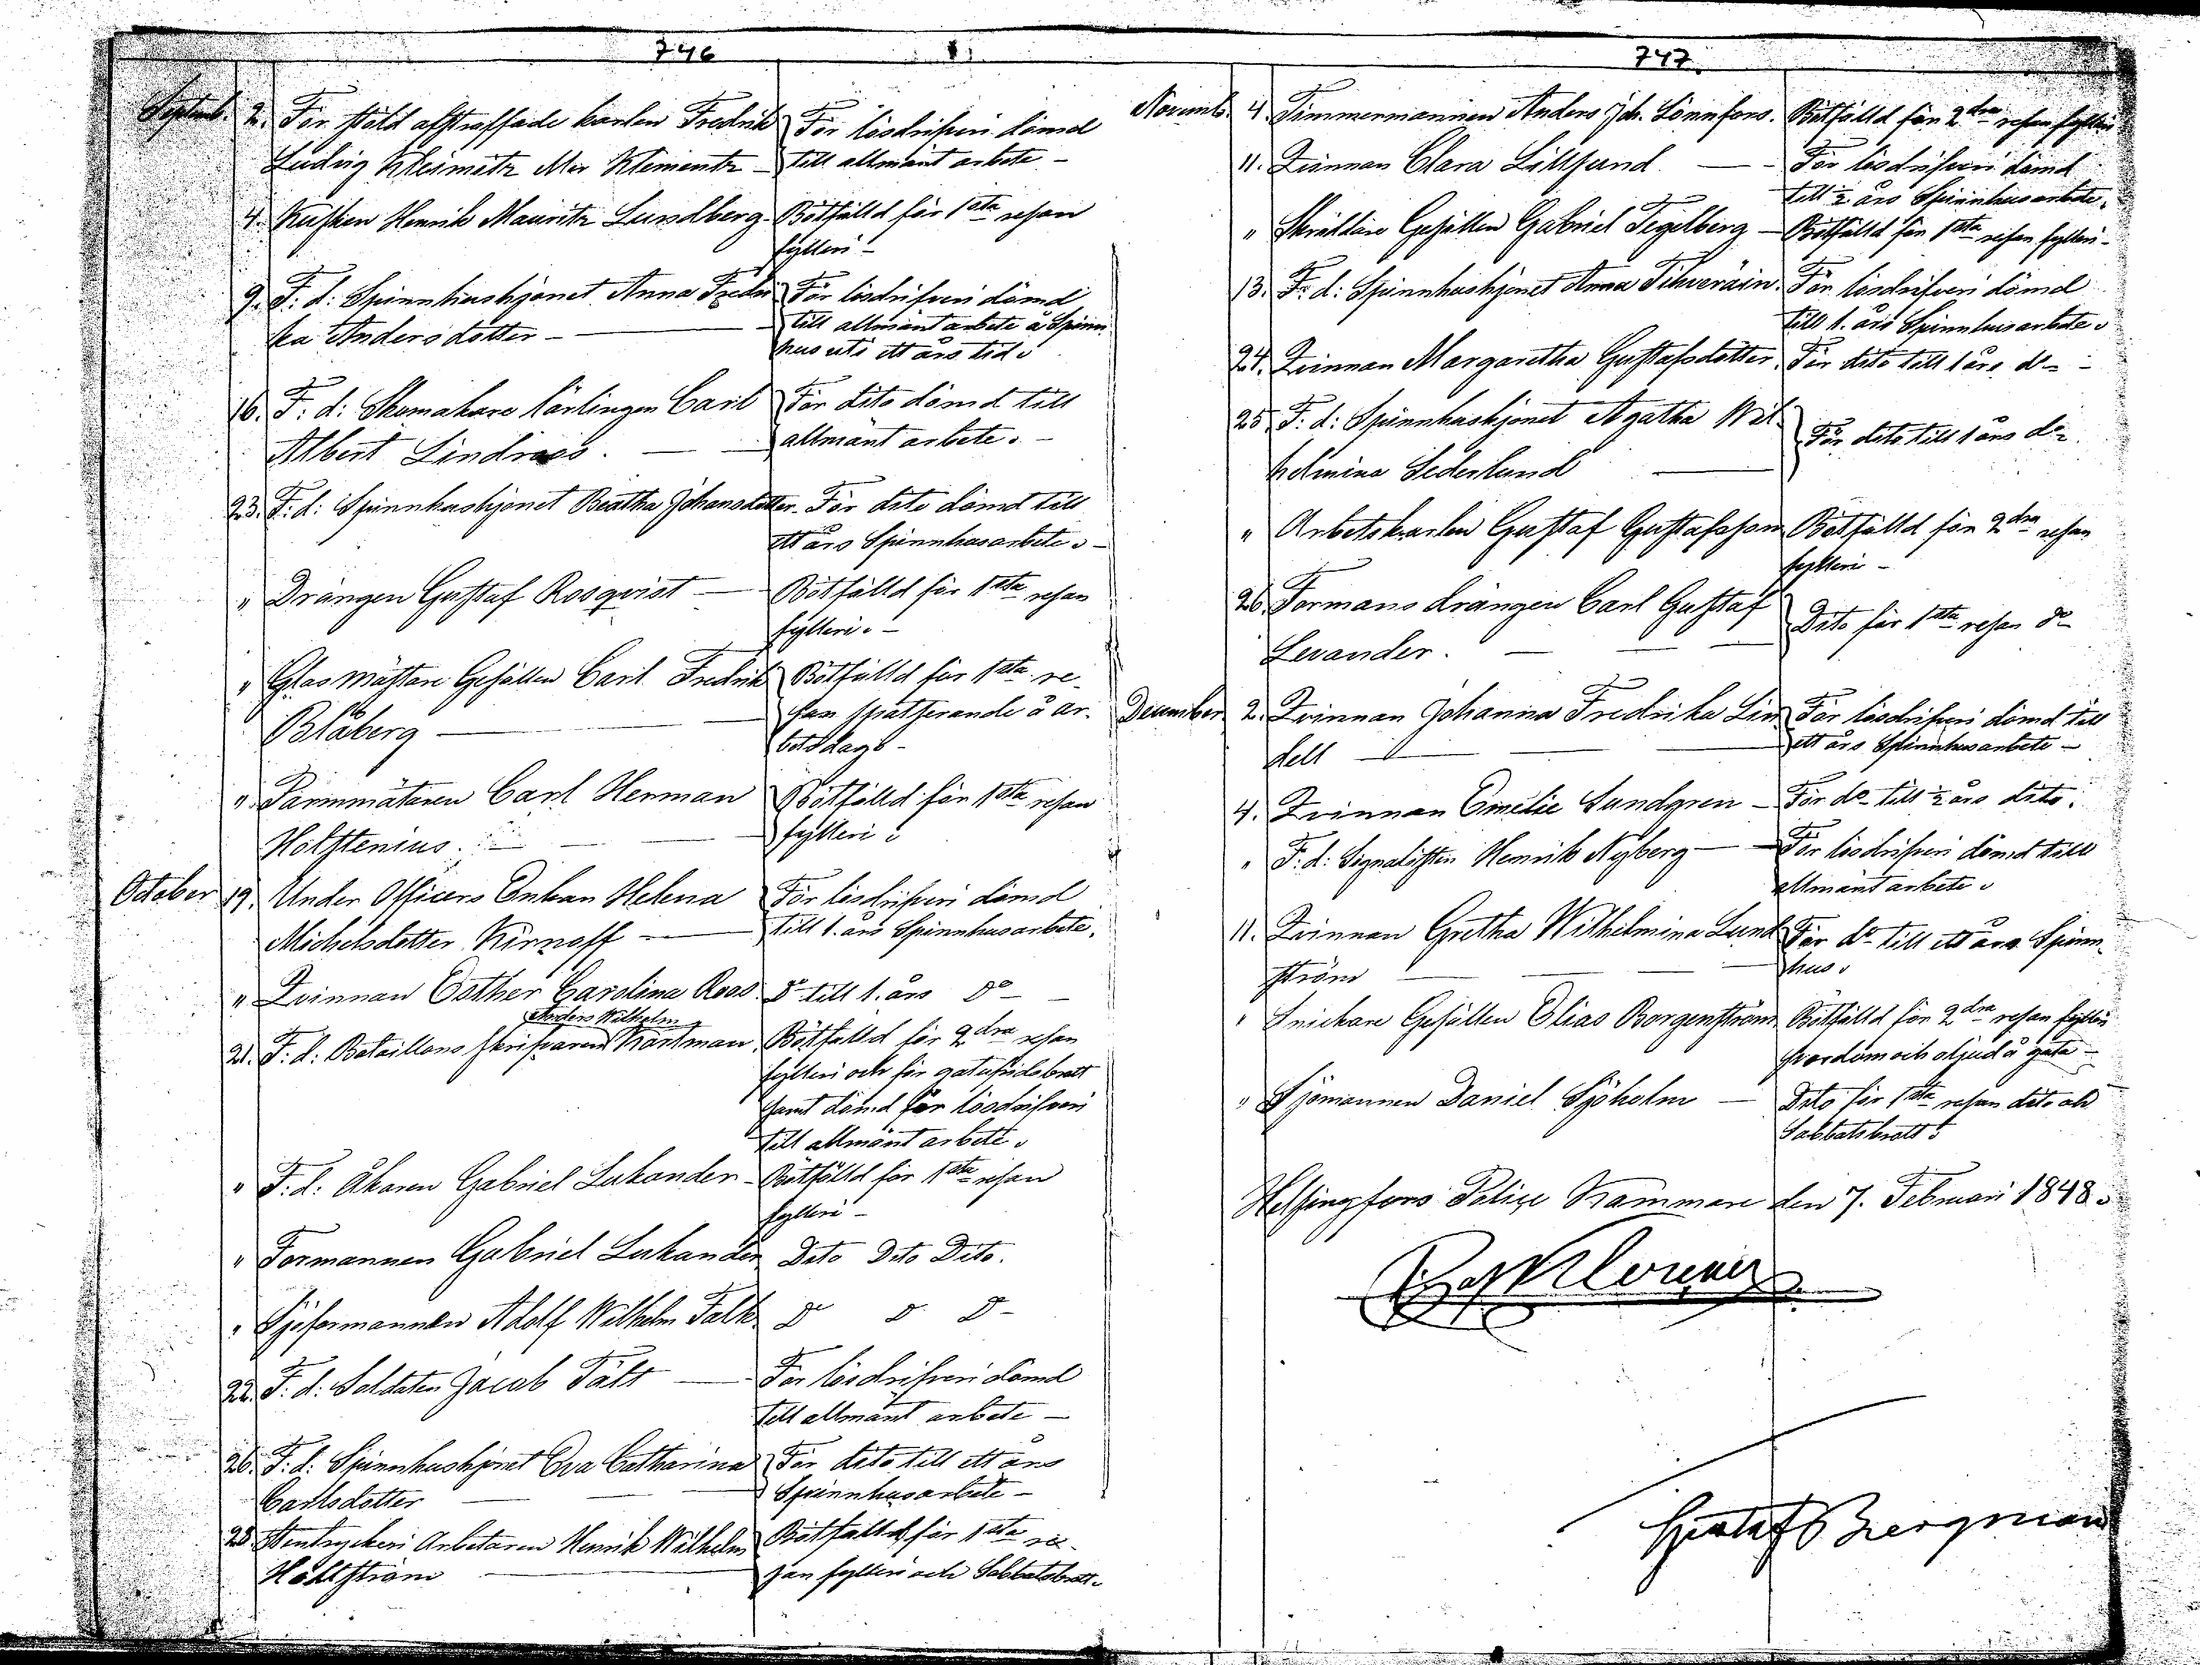 746
Septemb. 2. För stöld afstraffade karlen Fredrik För lösdrifveri dömd
Ludvig Kleimetz eller Klementz – till allmänt arbete –
4. Kusken Henrik Mauritz Lundberg – Bötfälld för 1sta resan
fylleri –
9. F. d: Spinnhushjonet Anna Fredri För lösdrifveri dömd
ka Andersdotter – till allmänt arbete å Spinn
hus uti ett års tid.
16. F. d: Skomakare lärlingen Carl För dito dömd till
Albert Lindroos. – allmänt arbete. –
23. F. d: Spinnhushjonet Beatha Johansdotter. För dito dömd till
ett års Spinnhusarbete. –
" Drängen Gustaf Rosqvist – Bötfälld för 1sta resan
fylleri. –
" Glasmästare Gesällen Carl Fredrik Bötfälld för 1sta re-
Blåberg – san spatserande å ar-
betsdag. –
" Parmmätaren Carl Herman Bötfälld för 1sta resan
Holstenius. – fylleri.
October 19. Under Officers Enkan Helena För lösdrifveri dömd
Michelsdotter Kirnoff – till 1. års Spinnhusarbete.
" Qvinnan Esther Carolina Roos. Do till 1. års do –
Anders Wilhelm
21. F. d: Bataillons skrifvaren Hartman Bötfälld för 2dra resan
fylleri och för gatufridsbrott
samt dömd för lösdrifveri
till allmänt arbete.
" F. d: Åkaren Gabriel Lukander – Bötfälld för 1sta resan
fylleri –
" Formannen Gabriel Lukander Dito Dito Dito.
" Sjöformannen Adolf Wilhelm Falk Do Do Do –
22. F. d: Soldaten Jacob Tält – För lösdrifveri dömd
till allmänt arbete –
26. F. d: Spinnhushjonet Eva Catharina För dito till ett års
Carlsdotter – Spinnhusarbete –
28. Stentryckeri Arbetaren Henrik Wilhelm Bötfälld för 1sta re-
Hällström – san fylleri och Sabbatsbrott.
747.
Novemb. 4. Timmermannen Anders Joh. Lönnfors. Bötfälld för 2dra resan fylleri
11. Qvinnan Clara Lillsund. – För lösdrifveri dömd
till ½ års Spinnhusarbete.
" Skräddare Gesällen Gabriel Tegelberg – Bötfälld för 1sta resan fylleri –
13. F. d: Spinnhushjonet Anna Tihveräin. För lösdrifveri dömd
till 1. års Spinnhusarbete.
24. Qvinnan Margaretha Gustafsdotter. För dito till 1 års do –
25. F. d: Spinnhushjonet Agatha Wil-
helmina Sederlund – För dito till 1 års do.
" Arbetskarlen Gustaf Gustafsson Bötfälld för 2dra resan
fylleri –
26. Formans drängen Carl Gustaf
Levander. – Dito för 1sta resan do
December 2. Qvinnan Johanna Fredrika Lin För lösdrifveri dömd till
dell – ett års Spinnhusarbete –
4. Qvinnan Emelie Sundgren – För do till ½ års dito.
" F. d: Signalisten Henrik Nyberg – För lösdrifveri dömd till
allmänt arbete.
11. Qvinnan Gretha Wilhelmina Lund För do till ett års Spinn-
ström – hus.
" Snickare Gesällen Elias Borgenström Bötfälld för 2dra resan fylleri
svordom och oljud å gata –
" Sjömannen Daniel Sjöholm – Dito för 1sta resan dito och
Sabbatsbrott.
Helsingfors Police Kammare den 7. Februari 1848.
Gustaf Bergman